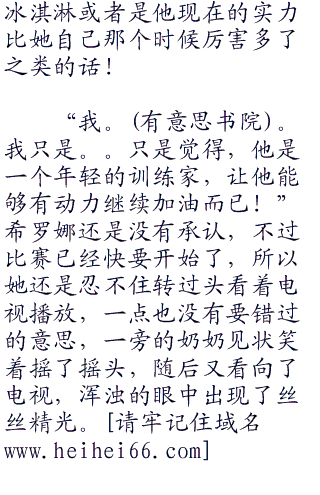 冰淇淋或者是他现在的实力
比她自己那个时候厉害多了
之类的话！
“我。(有意思书院)。
我只是。。只是觉得，他是
一个年轻的训练家，让他能
够有动力继续加油而已！”
希罗娜还是没有承认，不过
比赛已经快要开始了，所以
她还是忍不住转过头看着电
视播放，一点也没有要错过
的意思，一旁的奶奶见状笑
着摇了摇头，随后又看向了
电视，浑浊的眼中出现了丝
丝精光。[请牢记住域名
www.heihei66.com]